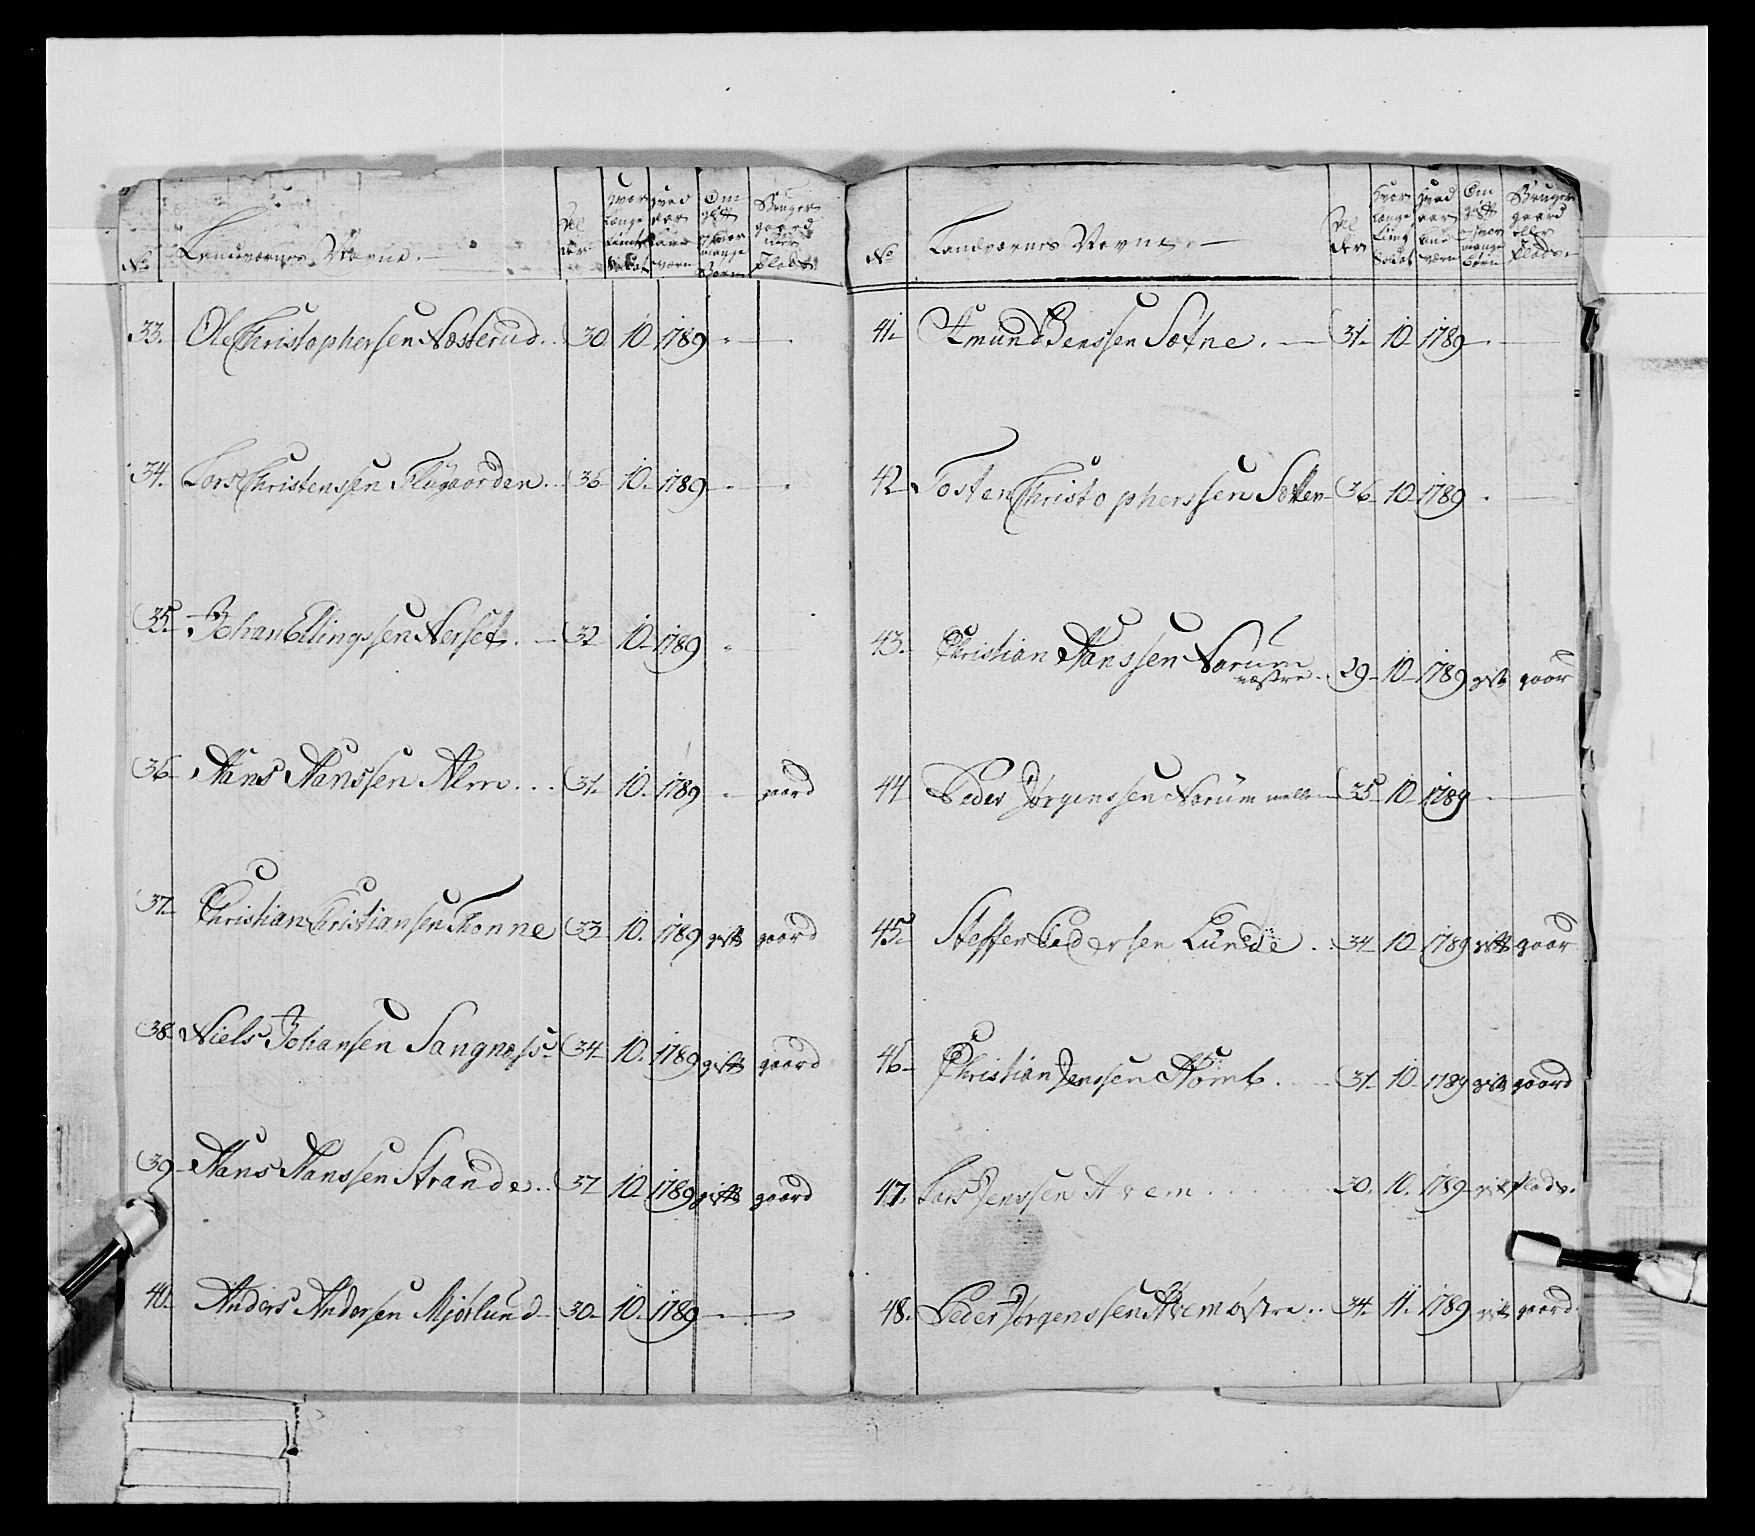 No Landværnes Navne. Al der Hvor længe tient Soldat Hvad aar land værn Om gift og hvor mange Børn Bruger gaard eller Plads.
33. Ole Christophersen Næsterud. 30 10 1789
34. Lars Christenssen Flügaarden. 36 10. 1789
35. Johan Ellingssen Nerset. 32 10 1789
36. Hans Hanssen Alm... 31. 10. 1789 gaard
37. Christian Christiansen Thonne 33 10. 1789 gift gaard
38. Niels Johansen Sangnæss 34 10. 1789 gift gaard
39. Hans Hanssen Strande.. 37 10 1789 gift gaard
40. Anders Andersen Mjørlund 30. 10. 1789
No Landværnes Navne. Al der Hvor længe tient Soldat Hvad aar land værn Om gift og hvor mange børn Bruger gaard eller Plads.
41. Amund Benssen Sætne. 31. 10 1789
42 Tosten Christopherssen Sætten 36 10 1789
43. Christian Hanssen Narum
væstre. 29 10 1789 gift gaar
44 Peder Jørgenssen Narum mellem 35 10 1789
45. Steffen Pedersen Lünde.. 34 10 1789 gift gaar
46 Christian Jenssen 31. 10. 1789 gift gaard
47. Lars Jenssen Hvem 30. 10. 1789 gift Plads.
48. Peder Jørgenssen Hvem østre.. 34. 11. 1789 gift gaard.